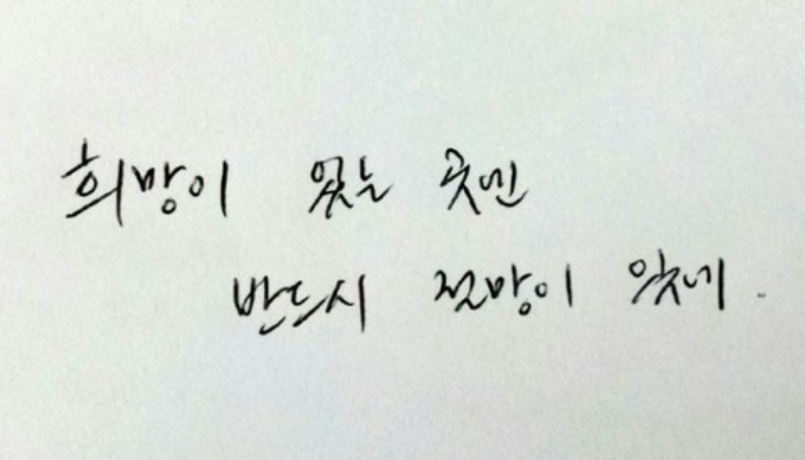 희망이 있는 곳엔
반드시 절망이 있네.